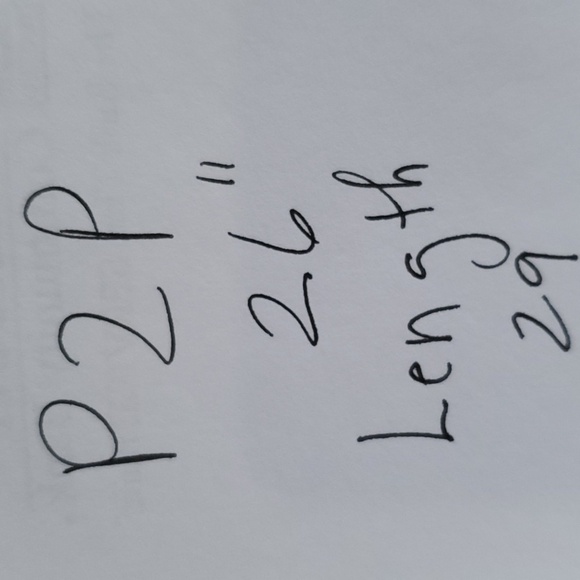 P2P
26"
Length
29